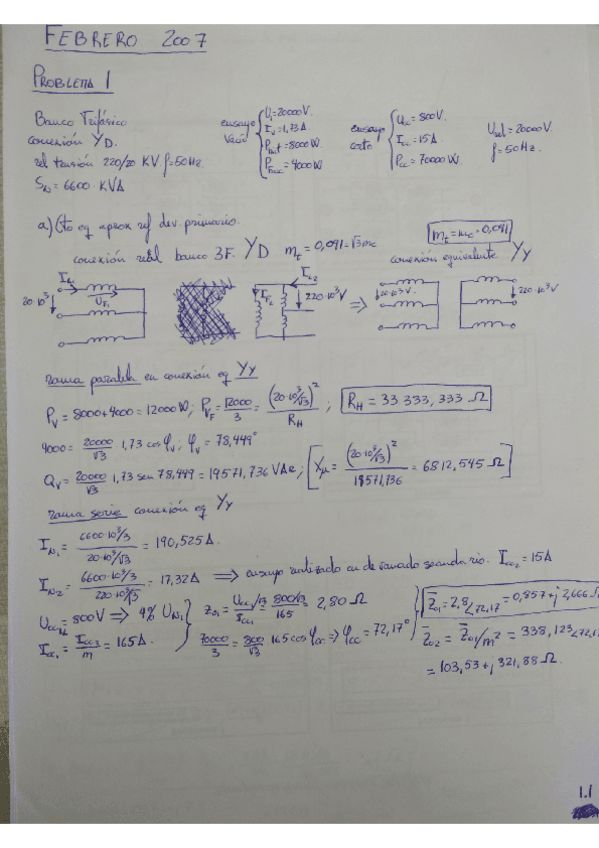 FEBRERO 2007
PROBLEMA 1
Banco Trifásico
conexión YD.
rel tensión 220/20 KV f=50Hz.
S_N = 6600 · KVA
ensayo vacío { U_1=20000V. I_V=1,73A P_hist=8000W P_Fouc=4000W
ensayo corto { U_cc=800V. I_cc=15A P_cc=70000W.
U_sal=20000V. f=50Hz.
a) Cto eq aprox ref dev. primario.
conexión real banco 3F. YD m_t=0,091=√3 m_c
m_t=m_c=0,091
conexión equivalente Yy
I_L1 20·10³ U_F1 I_F2 I_L2 220·10³V ⇒ 20·10³V. 220·10³V
rama paralela en conexión eq Yy
P_V = 8000+4000 = 12000W; P_VF = 12000/3 = (20·10³/√3)²/R_H ; R_H = 33 333,333 Ω
4000 = 20000/√3 1,73 cos φ_V ; φ_V = 78,449°
Q_V = 20000/√3 1,73 sen 78,449 = 19571,736 VAr; [X_μ = (20·10³/√3)²/19571,736 = 6812,545 Ω]
rama serie conexión eq Yy
I_N1 = 6600·10³/3 / 20·10³/√3 = 190,525A.
I_N2 = 6600·10³/3 / 220·10³/√3 = 17,32A ⇒ ensayo realizado en devanado secundario. I_cc2 = 15A
U_cc = 800V ⇒ 4% U_N1
I_cc1 = I_cc2/m = 165A.
Z_01 = U_cc/√3 / I_cc1 = 800/√3 / 165 = 2,80 Ω
70000/3 = 800/√3 165 cos φ_cc ⇒ φ_cc = 72,17°
Z̄_01 = 2,8∠72,17 = 0,857 + j 2,666 Ω
Z̄_02 = Z̄_01/m² = 338,123∠72,17
= 103,53 + j 321,88 Ω.
1.1